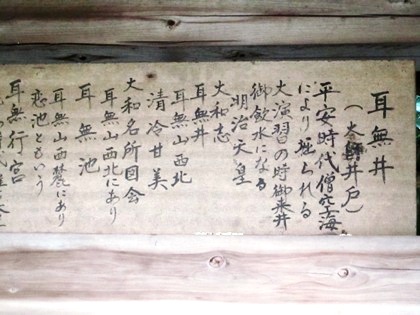 耳無井
(大師井戸)
平安時代僧空海
により堀られる
大演習の時御来井
御飲水になる
明治天皇
大和志
耳無井
耳無山西北
清冷甘美
大和名所図会
耳無山西北にあり
耳無池
耳無山西麓にあり
恋池ともいう
耳無行宮